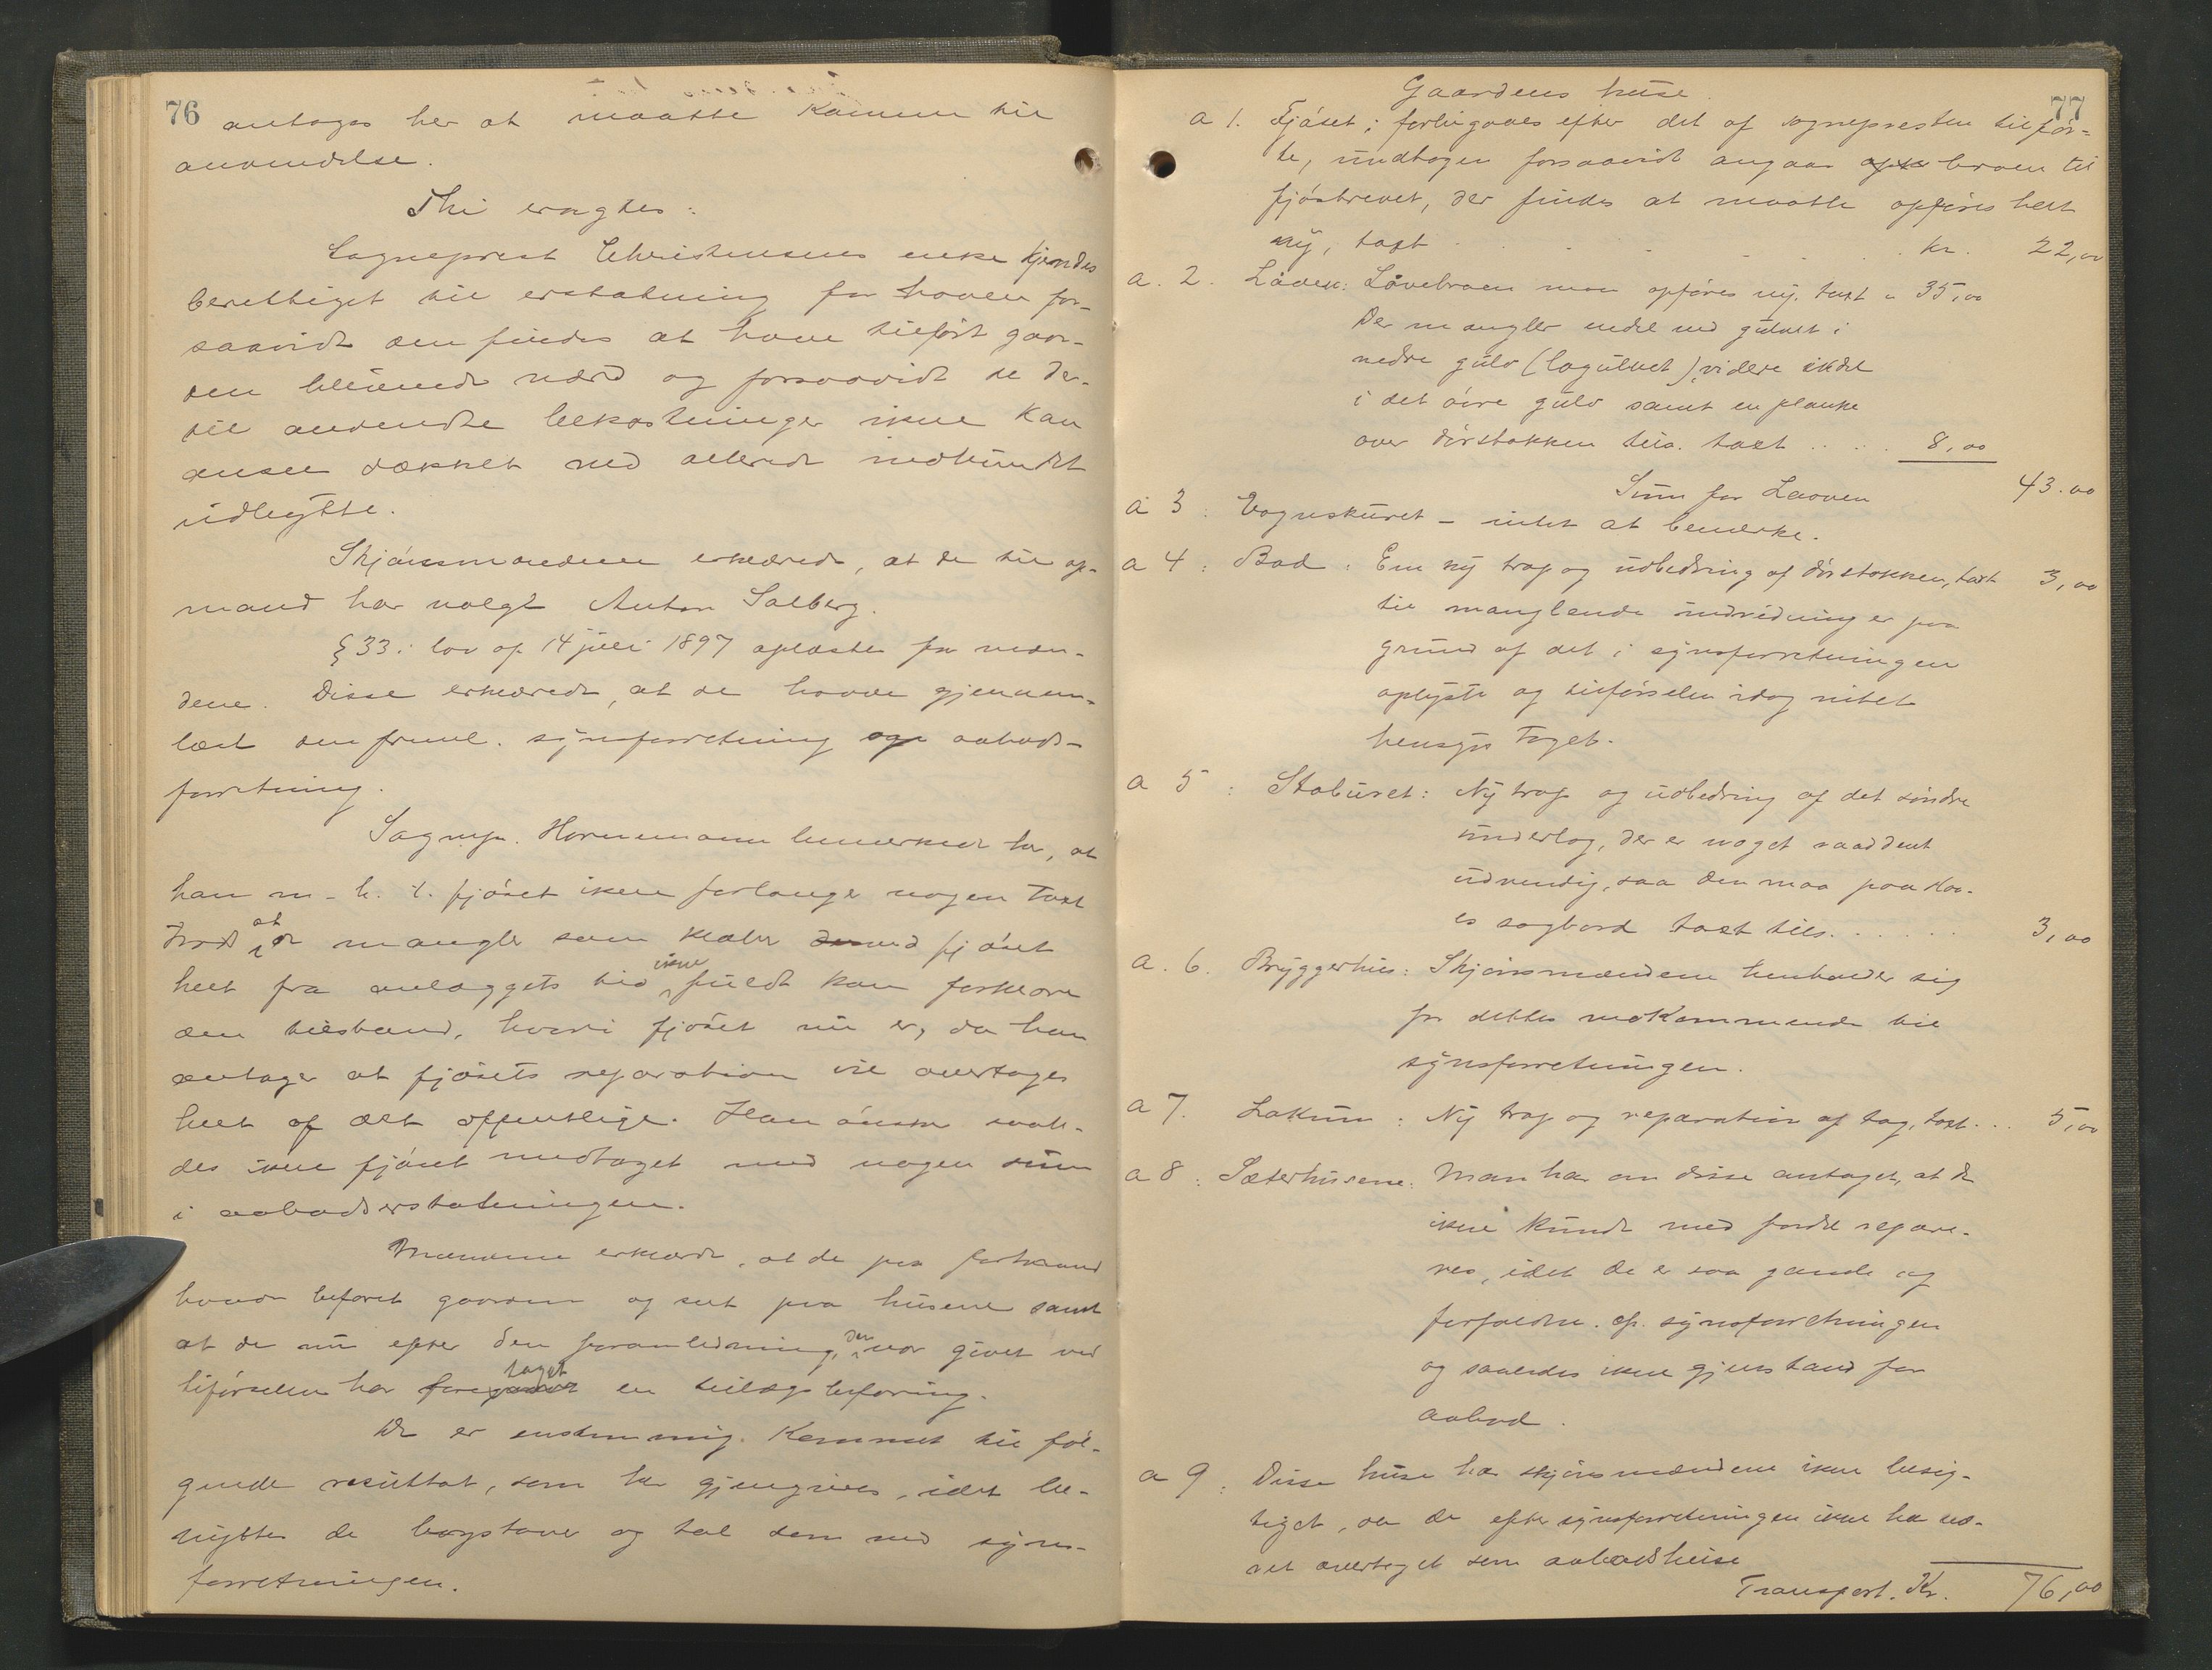 76
antages her at maatte komme til
anvendelse.
Thi eragtes:
Sogneprest Christensens enke kjendes
berettiget til erstatning for haven for-
saavidt den findes at have tilført gaar-
den blivende værd og forsaavidt de der-
til anvendte bekostninger ikke kan
ansees dækket ved allerede indvundet
udbytte.
Skjønsmændene erklærede, at de til op-
mand har valgt Anton Salberg.
§ 33 i lov af 14 juli 1897 oplæstes for mæn-
dene. Disse erklærede, at de havde gjennem-
læst den freml. synsforretning og aabods-
forretning.
Sognepr. Hornemann bemærkede her, at
han m.h.t. fjøset ikke forlanger nogen taxt
trods at de mangler som klæber ved fjøset
helt fra anlæggets tid ikke fuldt kan forklare
den tilstand, hvori fjøset nu er, da han
antager at fjøsets reparation vil overtages
helt af det offentlige. Han ønsker saale-
des ikke fjøset medtaget med nogen sum
i aabodserstatningen.
Mændene erklærede, at de paa forhaand
havde befaret gaarden og seet paa husene samt
at de nu efter den foranledning, der var givet ved
tilførselen har foretaget en tillægsbefaring.
De er enstemmig kommet til føl-
gende resultat, som her gjengives, idet be-
nyttes de bogstaver og tal som ved syns-
forretningen.
77
Gaardens huse.
a 1. Fjøset; forbigaaes efter det af sognepresten tilfør-
te, undtagen forsaavidt angaar broen til
fjøstrevet, der findes at maatte opføres helt
ny, taxt . . . . . . kr. 22,00
a. 2. Låven: Låvebroen maa opføres ny. taxt " 35,00
Der mangler endel ved gulvet i
nedre gulv (logulvet), videre endel
i det øvre gulv samt en planke
over dørstokken tils. taxt . . . 8,00
Sum for Laaven 43.00
a 3: Vognskuret – intet at bemerke.
a 4: Bod: En ny trap og udbedring af dørstokken, taxt 3,00
til manglende indredning er paa
grund af det i synsforretningen
oplyste og tilførselen idag intet
hensyn taget.
a 5: Staburet: Ny trap og udbedring af det søndre
underlag, der er noget raaddent
udvendig, saa den maa paaskaa-
es sagbord taxt tils. . . . . . 3,00
a. 6. Bryggerhus: Skjønsmændene henholder sig
for dettes vedkommende til
synsforretningen.
a 7. Lokum: Ny trap og reparation af tag, taxt . . . 5,00
a 8: Sæterhusene: Man har om disse antaget, at de
ikke kunde med fordel repare-
res, idet de er saa gamle og
forfaldne. cfr. synsforretningen
og saaledes ikke gjenstand for
aabod.
a 9: Disse huse har skjønsmændene ikke besig-
tiget, da de efter synsforretningen ikke har væ-
ret overtaget som aabodshuse
Transport. Kr. 76,00